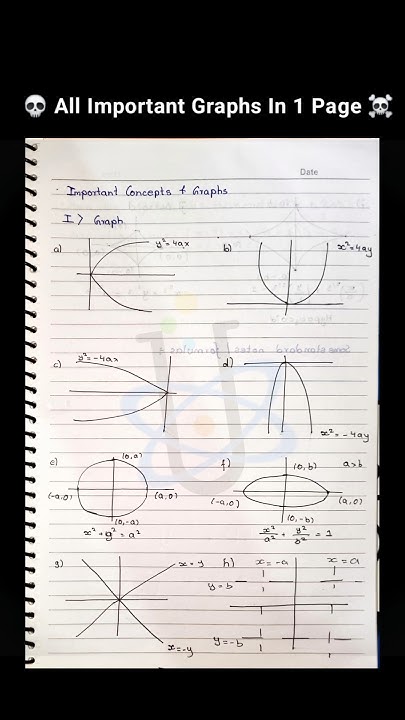 💀 All Important Graphs In 1 Page ☠️
Date
Important Concepts + Graphs
I > Graph
a) y² = 4ax
b) x² = 4ay
c) y² = -4ax
d) x² = -4ay
e) (0,a)
(-a,0) (a,0)
(0,-a)
x² + y² = a²
f) (0,b) a>b
(-a,0) (a,0)
(0,-b)
x²/a² + y²/b² = 1
g) x = y
x = -y
h) x = -a x = a
y = b
y = -b